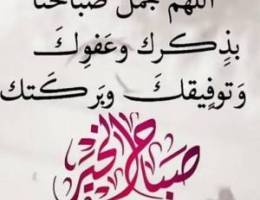 اللهم جمل صباحنا
بذِكرك وعَفوِكَ
وَتوفِيقكَ وبَركَتك
صباح الخير